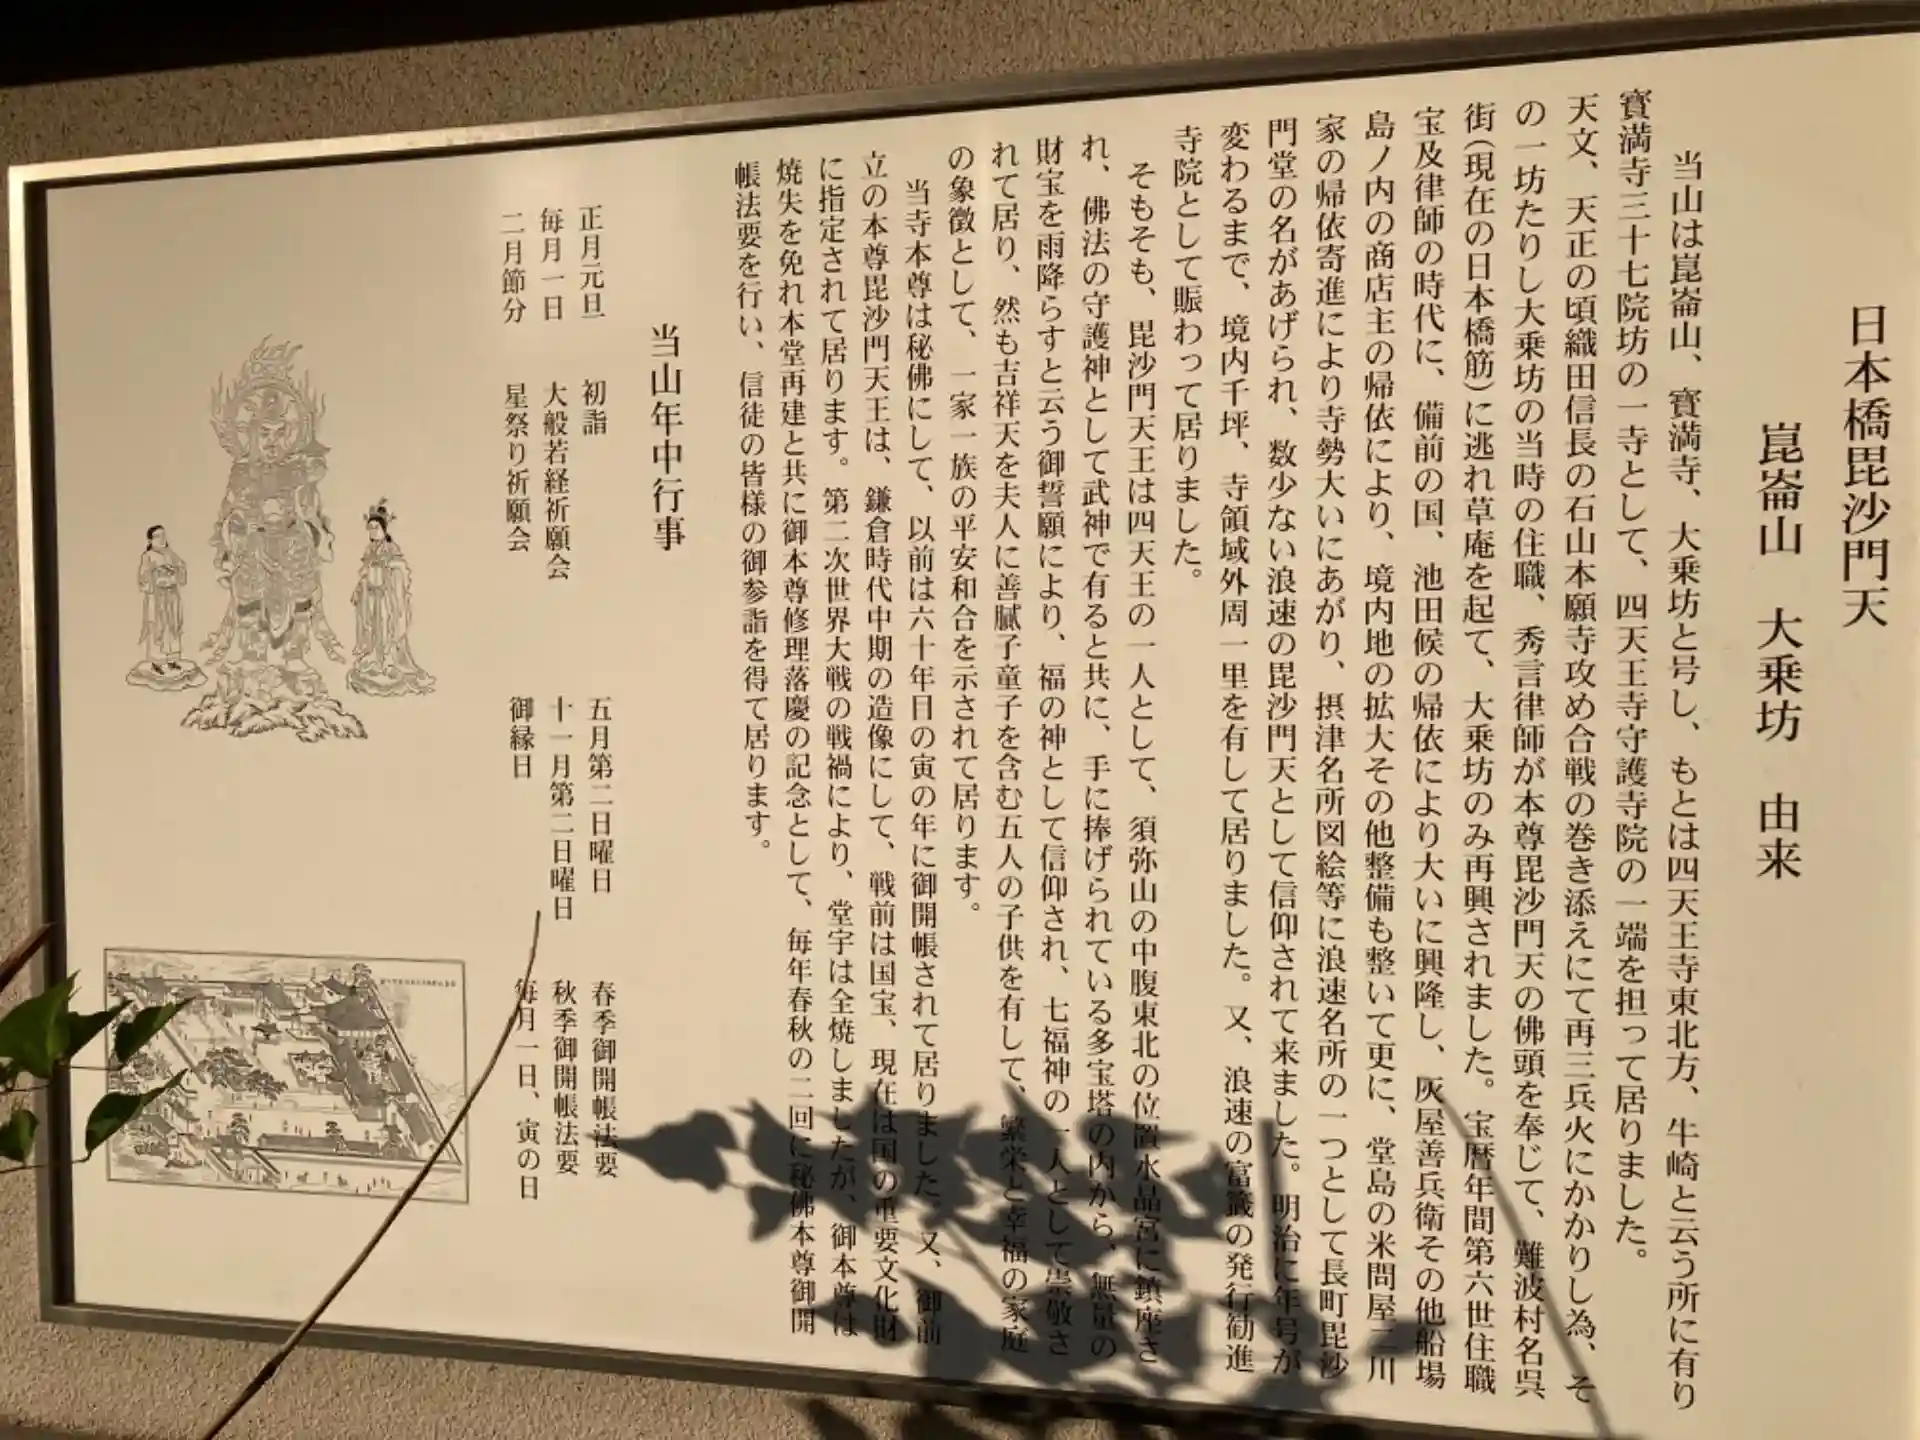 日本橋毘沙門天
崑崙山　大乗坊　由来
当山は崑崙山、寳満寺、大乗坊と号し、もとは四天王寺東北方、牛崎と云う所に有り
寳満寺三十七院坊の一寺として、四天王寺守護寺院の一端を担って居りました。
天文、天正の頃織田信長の石山本願寺攻め合戦の巻き添えにて再三兵火にかかりし為、そ
の一坊たりし大乗坊の当時の住職、秀言律師が本尊毘沙門天の佛頭を奉じて、難波村名呉
街(現在の日本橋筋)に逃れ草庵を起て、大乗坊のみ再興されました。宝暦年間第六世住職
宝及律師の時代に、備前の国、池田候の帰依により大いに興隆し、灰屋善兵衛その他船場
島ノ内の商店主の帰依により、境内地の拡大その他整備も整いて更に、堂島の米問屋二川
家の帰依寄進により寺勢大いにあがり、摂津名所図絵等に浪速名所の一つとして長町毘沙
門堂の名があげられ、数少ない浪速の毘沙門天として信仰されて来ました。明治に年号が
変わるまで、境内千坪、寺領域外周一里を有して居りました。又、浪速の富籤の発行勧進
寺院として賑わって居りました。
そもそも、毘沙門天王は四天王の一人として、須弥山の中腹東北の位置水晶宮に鎮座さ
れ、佛法の守護神として武神で有ると共に、手に捧げられている多宝塔の内から、無量の
財宝を雨降らすと云う御誓願により、福の神として信仰され、七福神の一人として崇敬さ
れて居り、然も吉祥天を夫人に善膩子童子を含む五人の子供を有して、繁栄と幸福の家庭
の象徴として、一家一族の平安和合を示されて居ります。
当寺本尊は秘佛にして、以前は六十年目の寅の年に御開帳されて居りました。又、御前
立の本尊毘沙門天王は、鎌倉時代中期の造像にして、戦前は国宝、現在は国の重要文化財
に指定されて居ります。第二次世界大戦の戦禍により、堂宇は全焼しましたが、御本尊は
焼失を免れ本堂再建と共に御本尊修理落慶の記念として、毎年春秋の二回に秘佛本尊御開
帳法要を行い、信徒の皆様の御参詣を得て居ります。
当山年中行事
正月元旦　初詣　五月第二日曜日　春季御開帳法要
毎月一日　大般若経祈願会　十一月第二日曜日　秋季御開帳法要
二月節分　星祭り祈願会　御縁日　毎月一日、寅の日